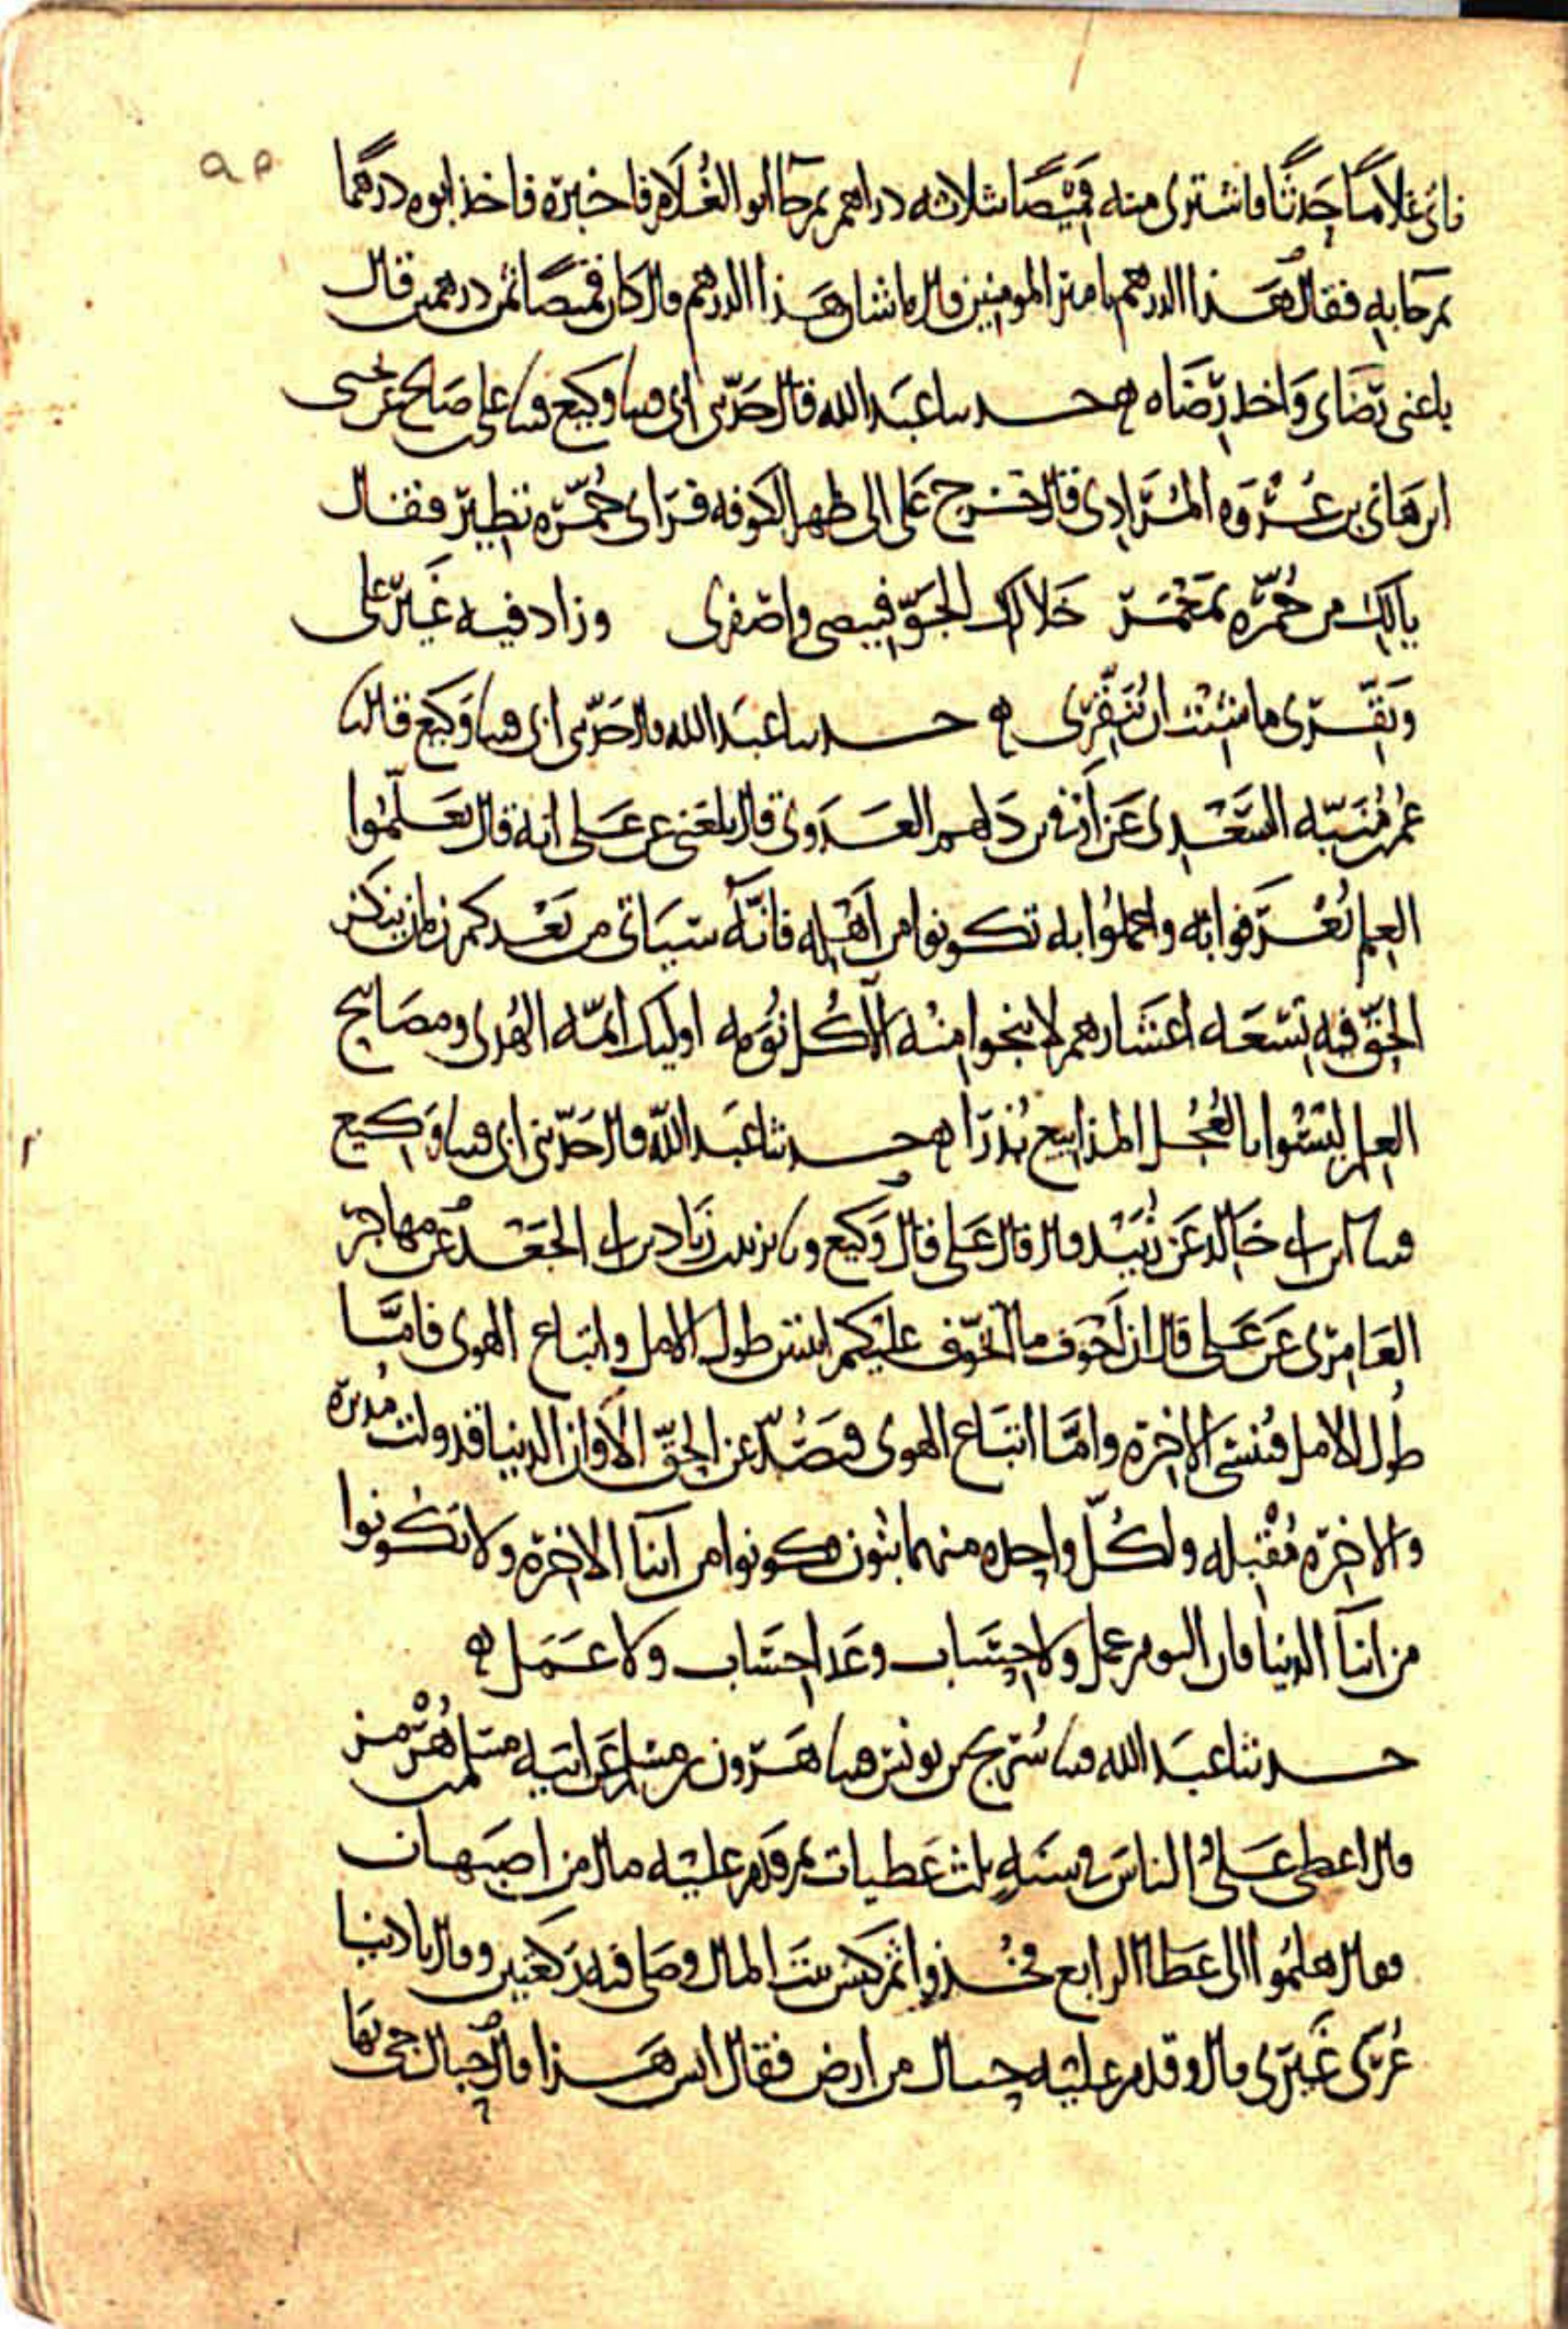 فاتى غلاما حدثا فاشترى منه قميصا بثلاثه دراهم ثم جا ابو الغلام فاخبره فاخذ ابوه درهما
ثم جا به فقال هذا الدرهم يا مير المومنين قال ما شان هذا الدرهم قال كان قميصا ثمن درهمين قال
باعنى رضاى واخد رضاه ه حدثنا عبد الله قال حدثنى ابى ثنا وكيع ثنا على بن صالح عن يحيى
ابن هانى بن عروه المرادى قال خرج على الى ظهر الكوفه فراى حمره تطير فقال
يالك من حمره بمعمر خلا لك الجو فبيضى واصفرى وزاد فيه غير على
ونقرى ما شئت ان تنقرى ه حدثنا عبد الله قال حدثنى ابى ثنا وكيع قال ثنا
عمر بن منبه السعدى عن اوفى بن دلهم العدوى قال بلغنى عن على انه قال تعلموا
العلم تعرفوا به واعملوا به تكونوا من اهله فانه سياتى من بعدكم زمان ينكر
الحق فيه تسعه اعشارهم لا ينجوا منه الا كل نومه اوليك ايمه الهدى ومصابيح
العلم ليسوا بالعجل المذاييع بذرا ه حدثنا عبد الله قال حدثنى ابى ثنا وكيع
ثنا ابن ابى خالد عن زبيد قال قال على قال وكيع وثنا يزيد بن زياد بن ابى الجعد عن مهاجر
العامرى عن على قال ان اخوف ما اتخوف عليكم اثنتين طول الامل واتباع الهوى فاما
طول الامل فينسى الاخره واما اتباع الهوى فيصد عن الحق الا وان الدنيا قد ولت مدبره
والاخره مقبله ولكل واحده منهما بنون فكونوا من ابنا الاخره ولا تكونوا
من ابنا الدنيا فان اليوم عمل ولا حساب وغدا حساب ولا عمل ه
حدثنا عبد الله ثنا سريج بن يونس ثنا هرون بن مسلم عن ابيه مسلم بن هرمز
قال اعطى على الناس فى سنه ثلث عطيات ثم قدم عليه مال من اصبهان
فقال هلموا الى عطا الرابع فخذوا ثم كنس بيت المال وصلى فيه ركعتين وقال يا دنيا
غرى غيرى قال وقدم عليه حبال من ارض فقال ايش هذا قال حبال جى بها